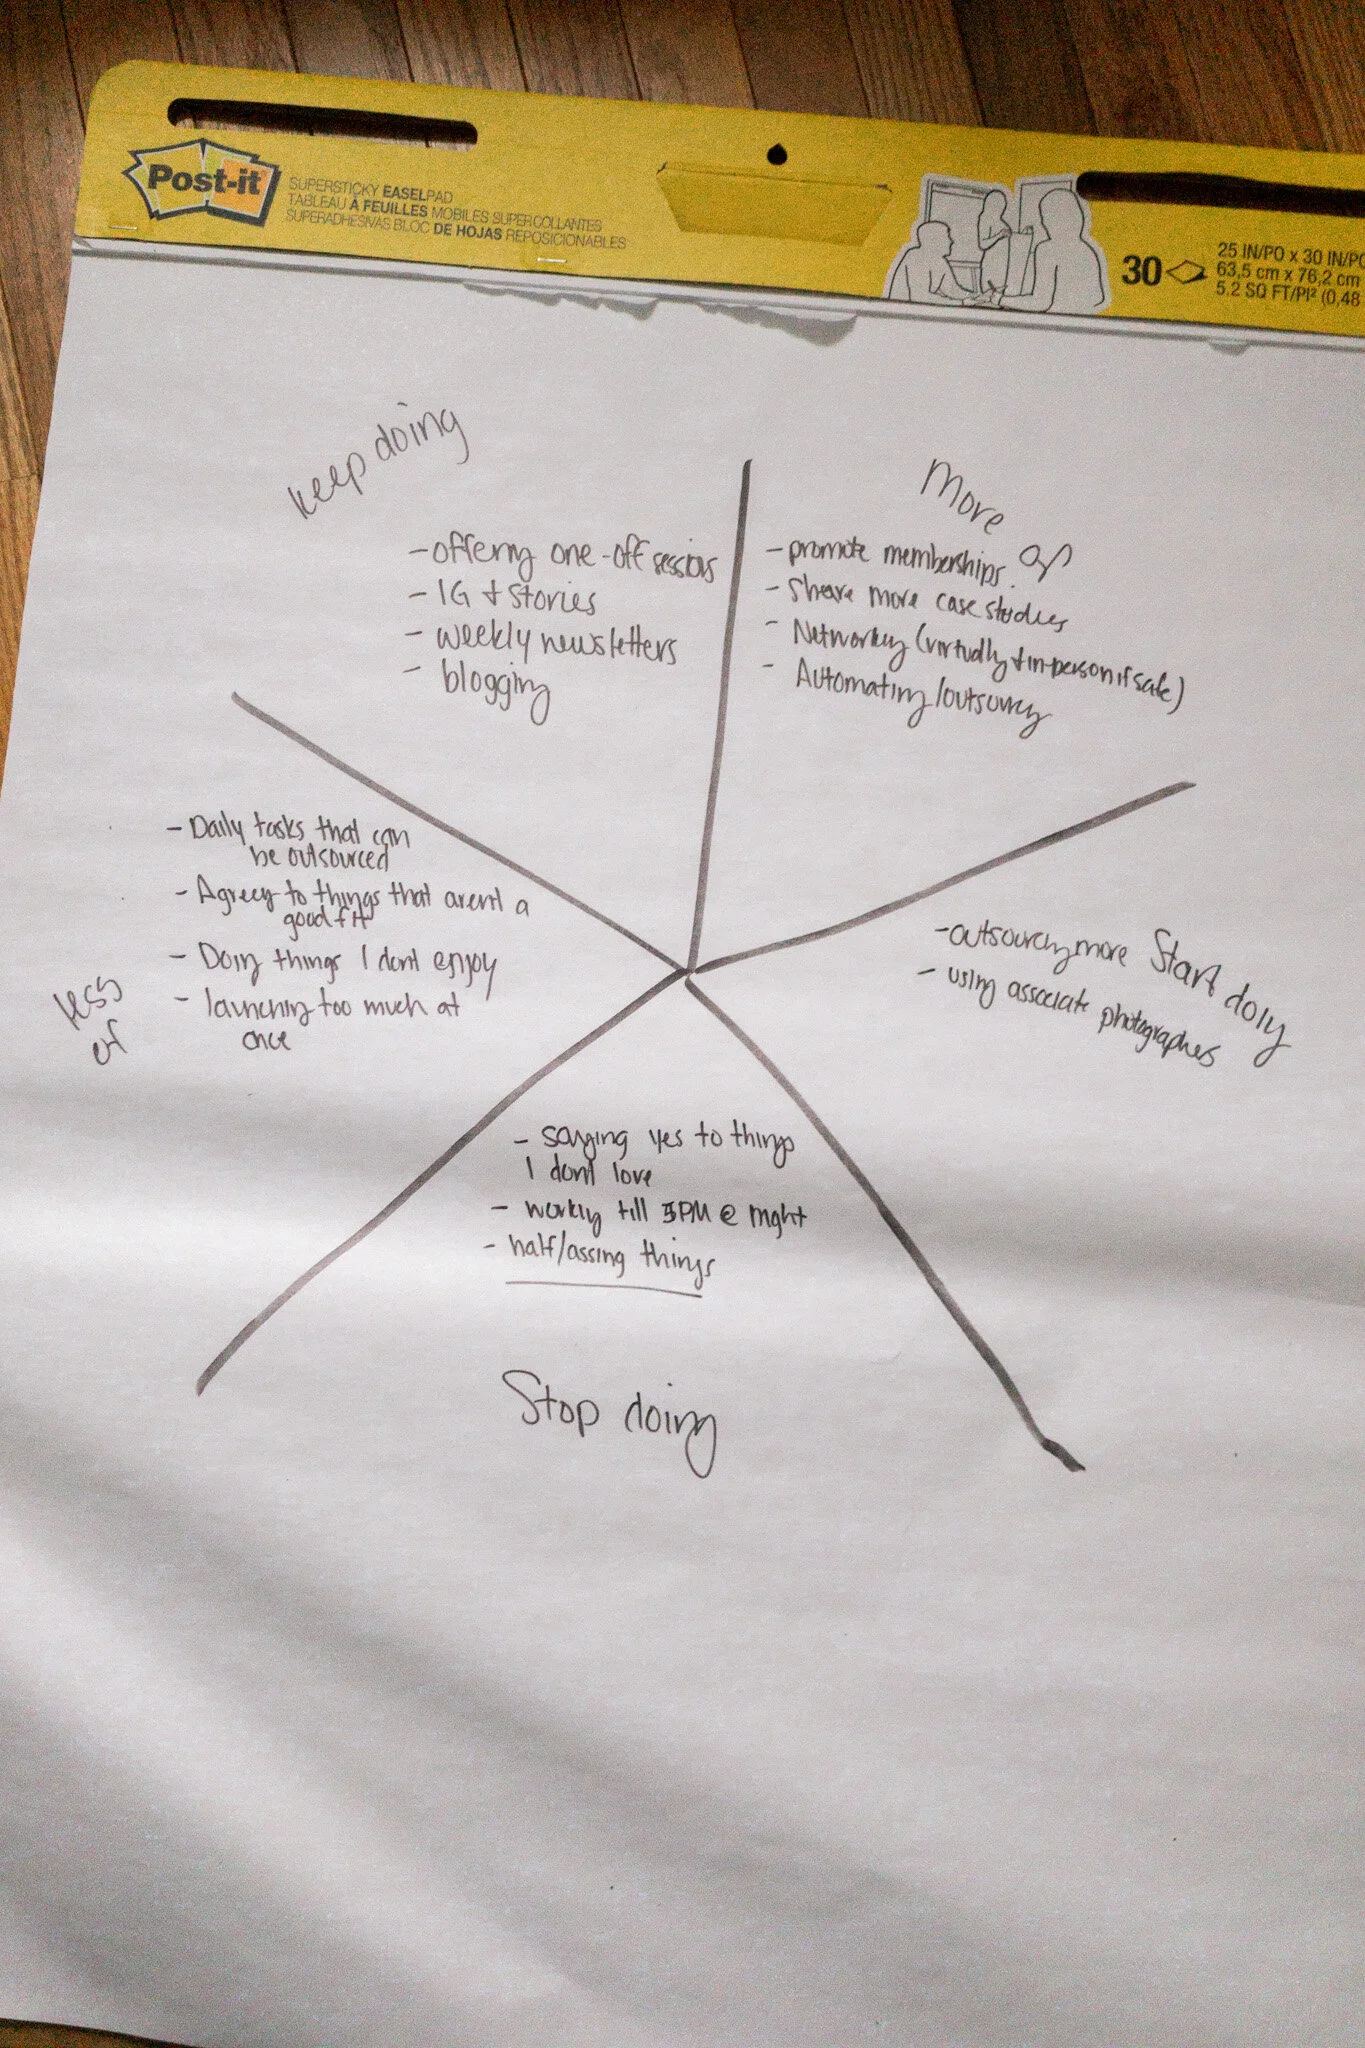 Post-it
SUPERSTICKY EASELPAD
TABLEAU À FEUILLES MOBILES SUPERCOLLANTES
SUPERADHESIVAS BLOC DE HOJAS REPOSICIONABLES
30
25 IN/PO x 30 IN/PO
63,5 cm x 76,2 cm
5.2 SQ FT/PI² (0,48
keep doing
- offering one-off sessions
- IG + stories
- weekly newsletters
- blogging
More of
- promote memberships
- Share more case studies
- Networking (virtually + in-person if safe)
- Automating/outsourcing
- Daily tasks that can
be outsourced
- Agreeing to things that aren't a
good fit
- Doing things I dont enjoy
- launching too much at
once
less
of
Start doing
- outsourcing more
- using associate photographers
- saying yes to things
I dont love
- working till 5PM @ night
- half/assing things
Stop doing